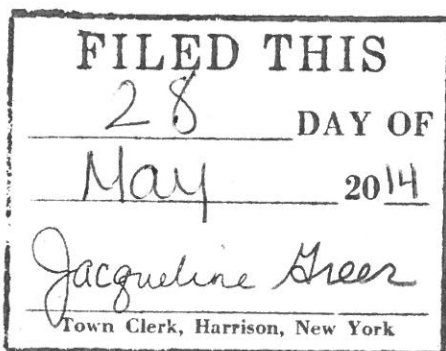 FILED THIS
28 DAY OF
May 2014
Jacqueline Greer
Town Clerk, Harrison, New York